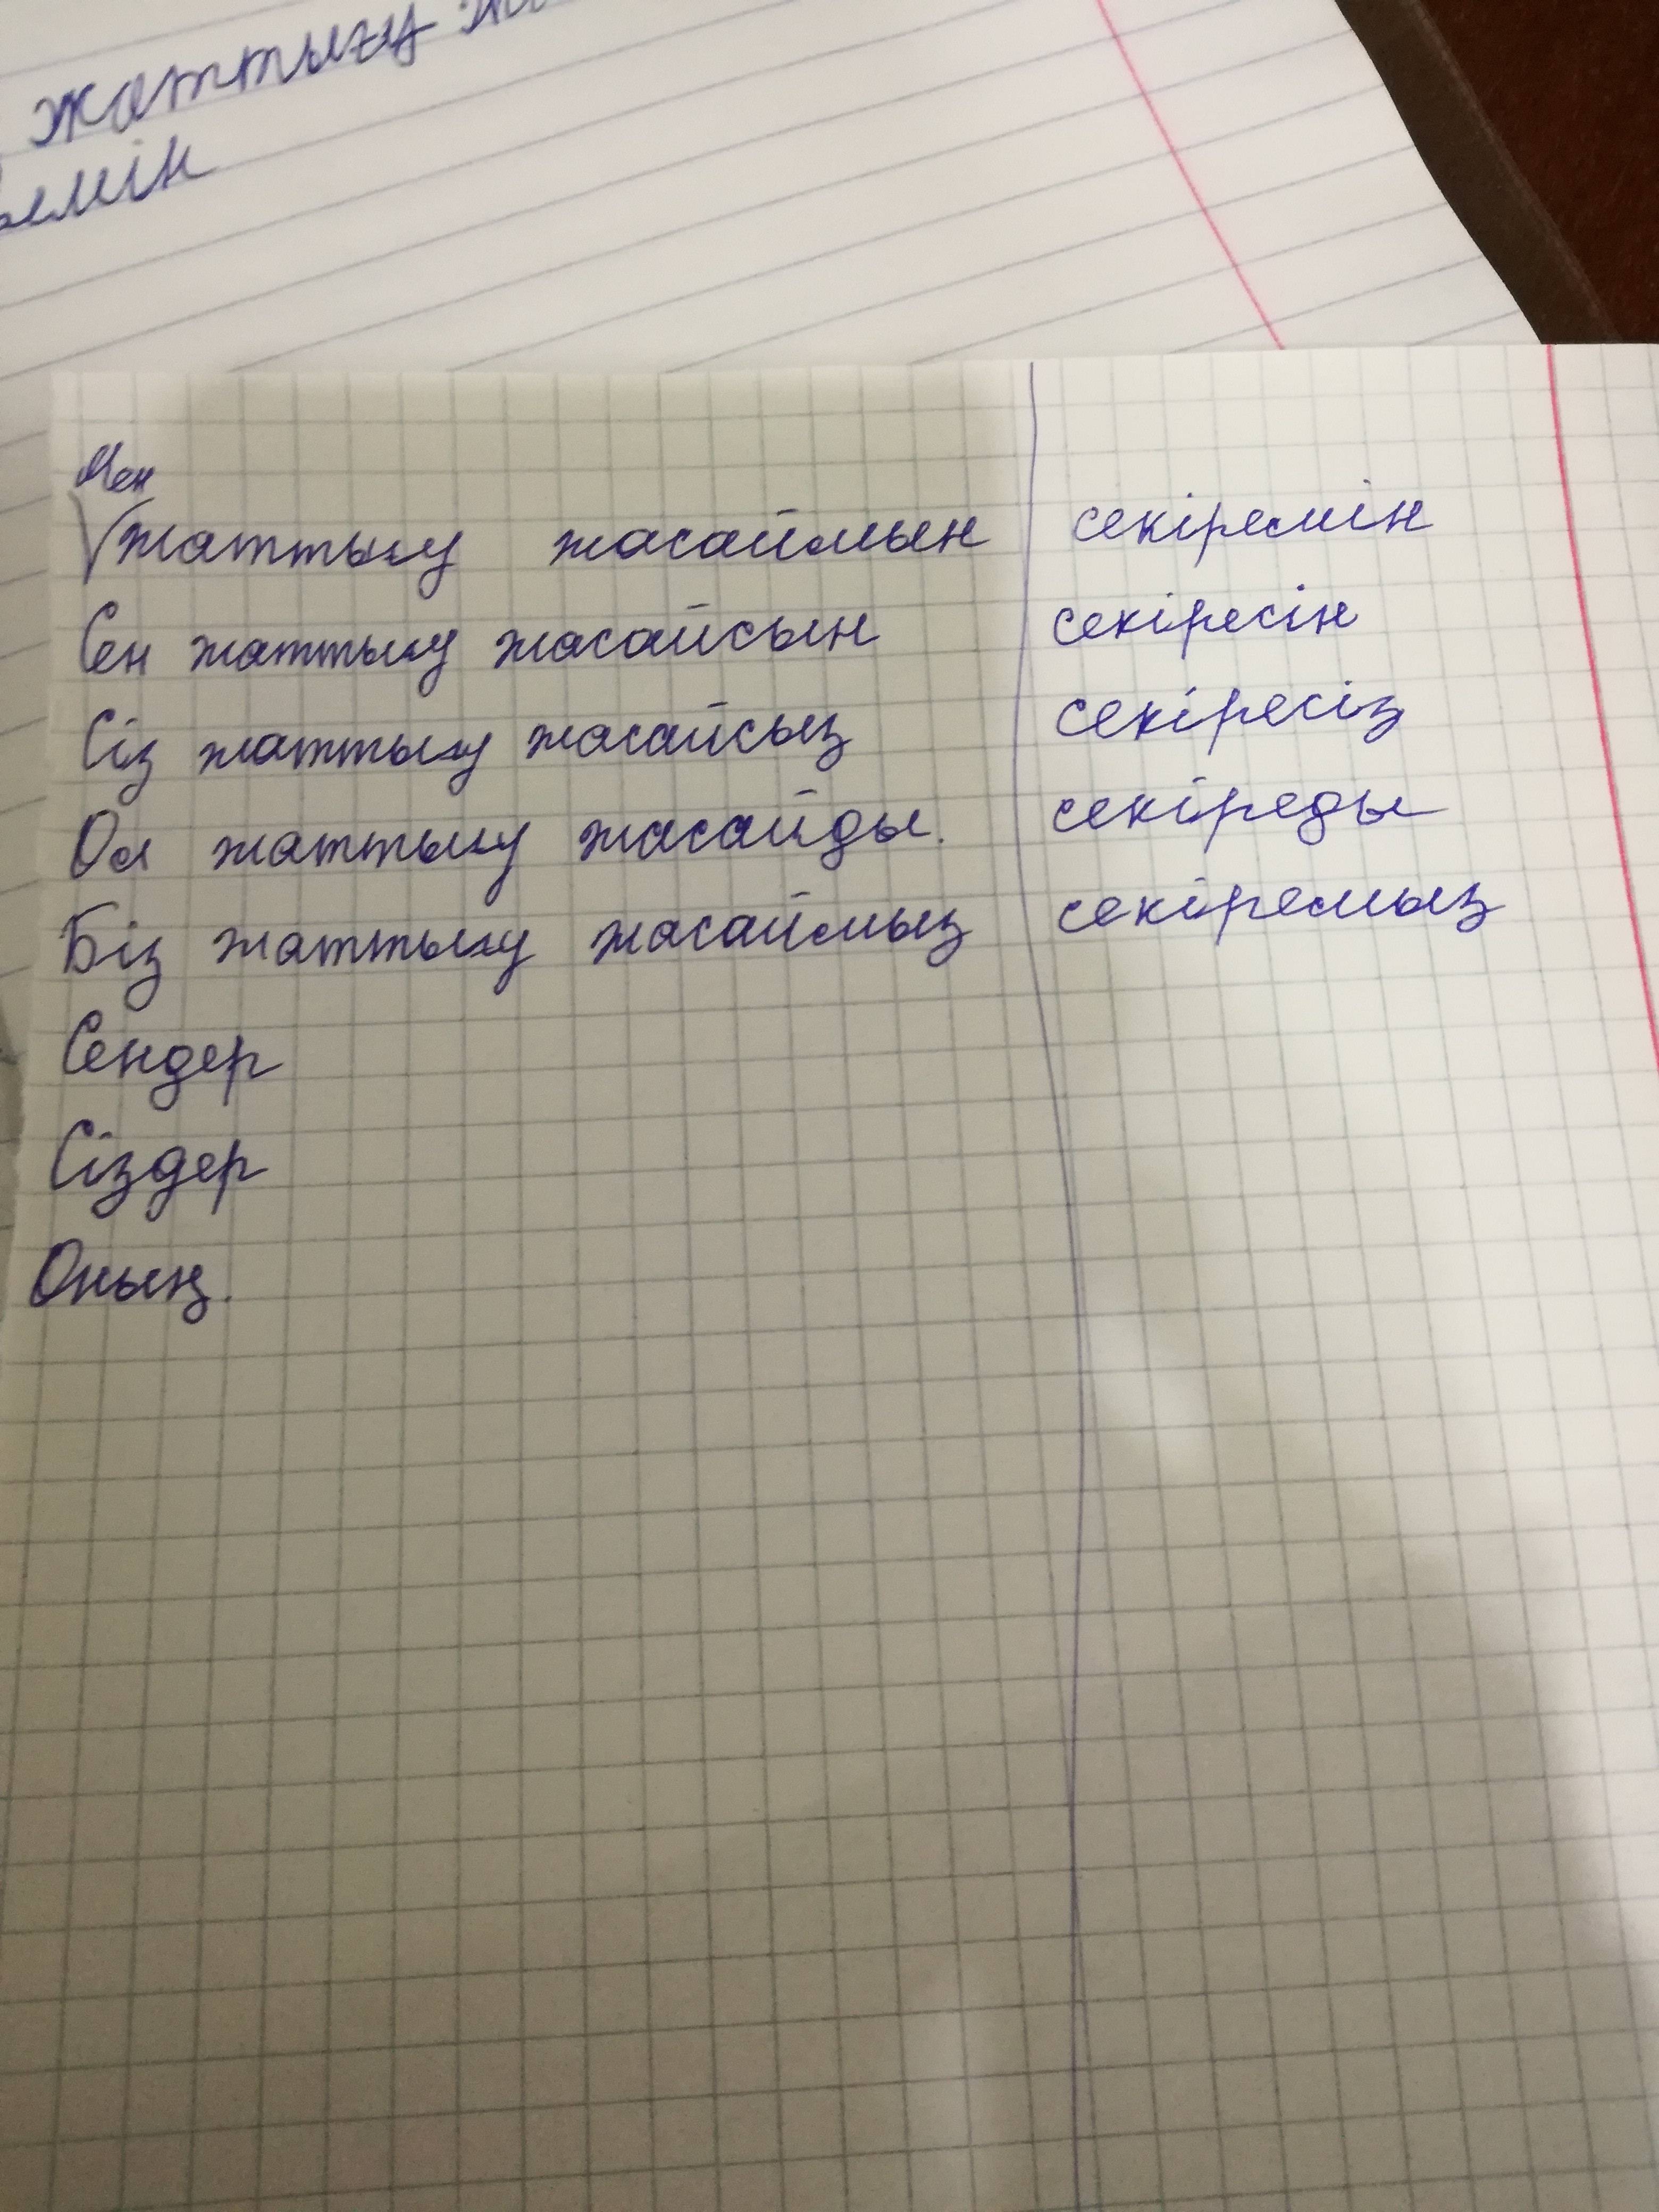 жаттығу
Мен
жаттығу жасаймын секіремін
Сен жаттығу жасайсын секіресін
Сіз жаттығу жасайсыз секіресіз
Ол жаттығу жасайды. секіреды
Біз жаттығу жасаймыз секіремыз
Сендер
Сіздер
Оның.